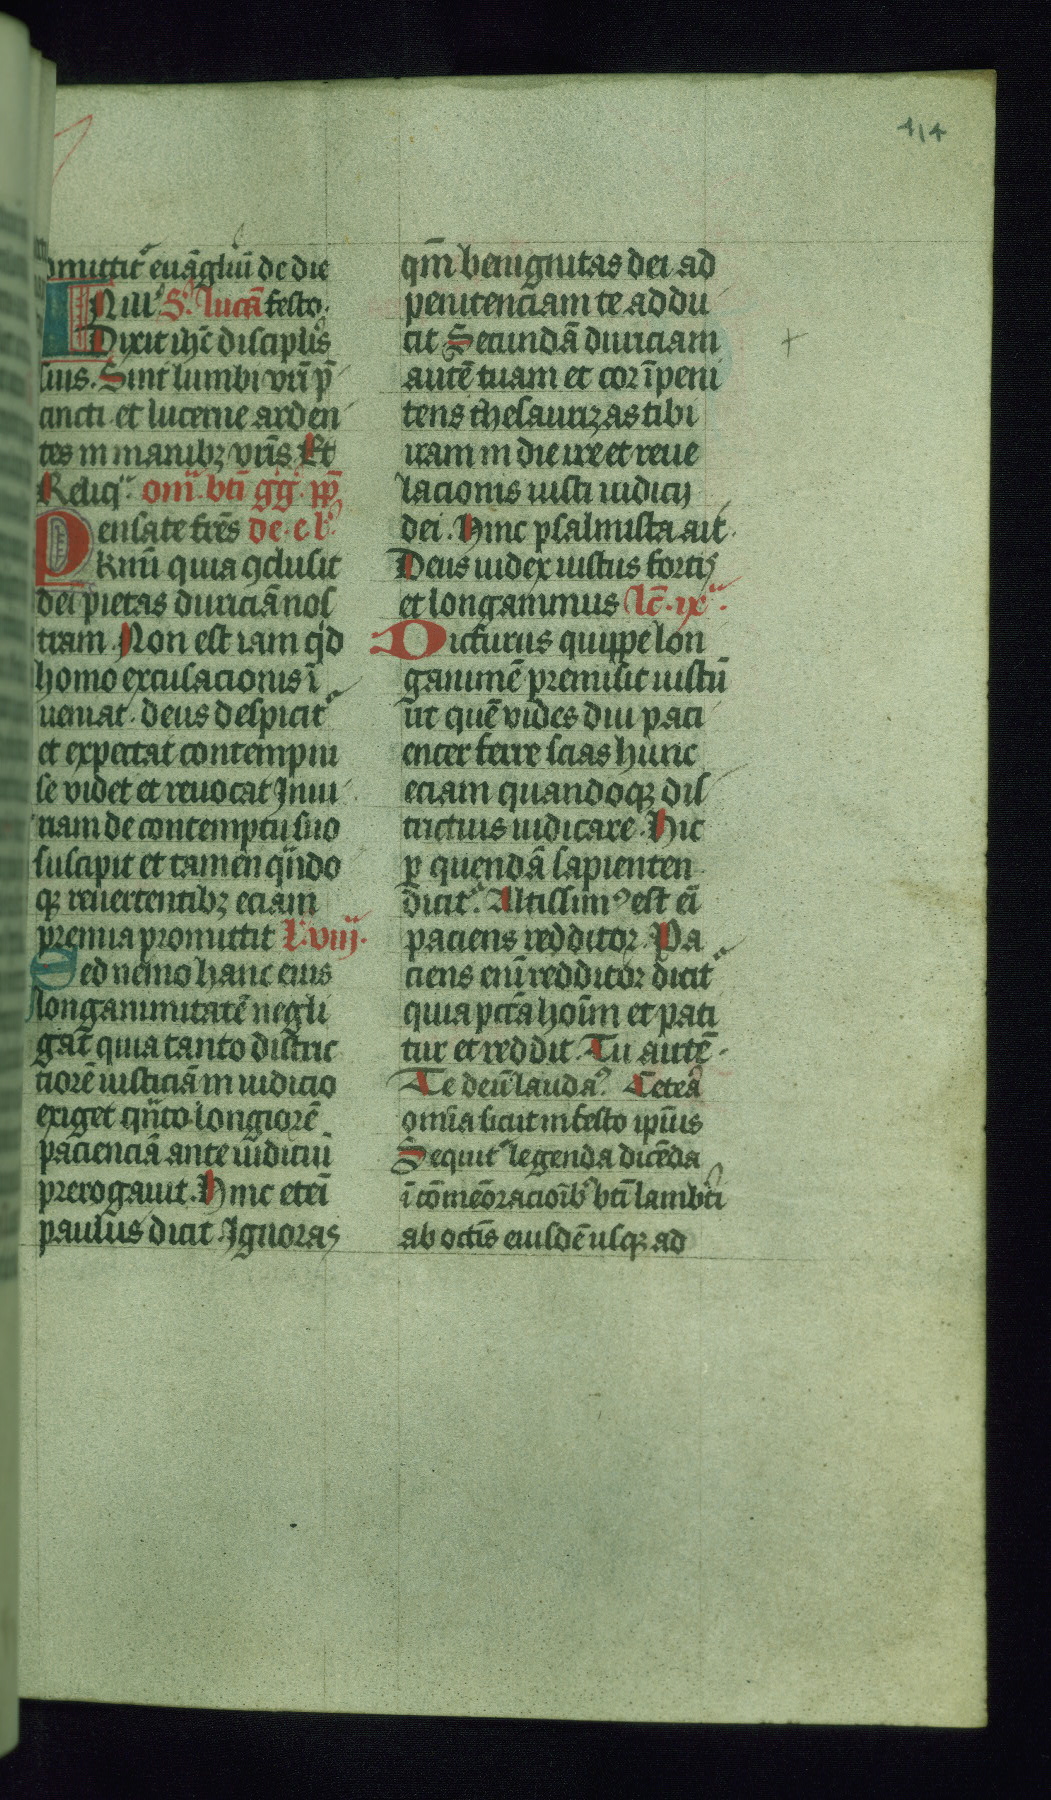 414
omittit᷑ euāgliū de die
IN illᵒ Sᵐ lucā festo.
Dixit ihc̄ discipl̄is
suis. Sint lumbi vr̄i p̄
cincti et lucerne arden
tes in manibꝫ vr̄is Et
Reliqᵃ om̄. bt̄i gg̍. pp̄
Pensate fr̄es de. e lᵒ
kr̄mi quia ꝯclusit
dei pietas duriciā nos
tram. Non est iam qd̍
homo excusacionis ī
ueniat. deus despicit᷑
et expectat contempni
se videt et reuocat Iniu
riam de contemptu suo
suscipit et tamen qn̄do
qꝫ reuertentibꝫ eciam
premia promittit L. viij.
Sed nemo hanc eius
longanimitatē negli
gat quia tanto distric
tiorē iusticiā in iudicio
exiget qn̄to longiorē
pacienciā ante iudiciū
prerogauit. Hinc eteī
paulus dicit Ignoras
qm̄ benignitas dei ad
penitenciam te addu
cit Secundā duriciam
autē tuam et cor īpeni
tens thesaurizas tibi
iram in die ire et reue
lacionis iusti iudicij
dei. Hinc psalmista ait.
Deus iudex iustus fortis
et longanimus lc̄. ixᵃ.
Dicturus quippe lon
ganimē premisit iustū
ut quē vides diu paci
enter ferre scias hunc
eciam quandoqꝫ dis
trictius iudicare. Hic
ꝑ quendā sapienten
dicit᷑. Altissimꝰ est eī
paciens redditor. Pa
ciens enī redditor dicit᷑
quia pctā hoīm et pati
tur et reddit. Tu autē.
Te deū laudaꝰ. Ceteᷓa
omīa sicut in festo ipīus
Sequit᷑ legenda dicēda
ī cōmēoracioīb᷒ bt̄i lamb̄ti
ab octīs eiusdē usqꝫ ad